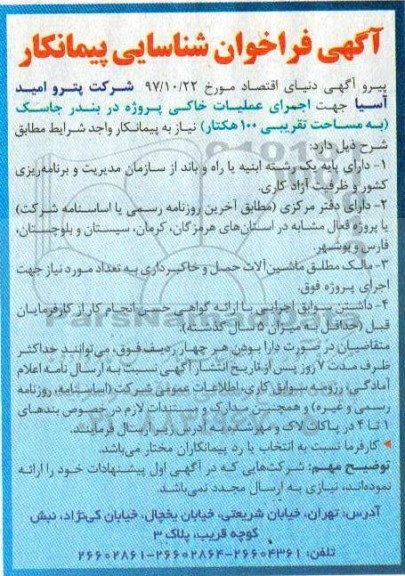 آگهی فراخوان شناسایی پیمانکار
پیرو آگهی دنیای اقتصاد مورخ ۹۷/۱۰/۲۲ شرکت پترو امید
آسیا جهت اجرای عملیات خاکی پروژه در بندر جاسک
(به مساحت تقریبی ۱۰۰ هکتار) نیاز به پیمانکار واجد شرایط مطابق
شرح ذیل دارد:
۱- دارای پایه یک رشته ابنیه یا راه و باند از سازمان مدیریت و برنامه‌ریزی
کشور و ظرفیت آزاد کاری.
۲- دارای دفتر مرکزی (مطابق آخرین روزنامه رسمی یا اساسنامه شرکت)
یا پروژه فعال مشابه در استان‌های هرمزگان، کرمان، سیستان و بلوچستان،
فارس و بوشهر.
۳- مالک مطلق ماشین‌آلات حمل و خاکبرداری به تعداد مورد نیاز جهت
اجرای پروژه فوق.
۴- داشتن سوابق اجرایی با ارائه گواهی حسن انجام کار از کارفرمایان
قبل (حداقل به میزان ۵ سال گذشته)
متقاضیان در صورت دارا بودن هر چهار ردیف فوق، می‌توانند حداکثر
ظرف مدت ۷ روز پس از تاریخ انتشار آگهی نسبت به ارسال نامه اعلام
آمادگی، رزومه سوابق کاری، اطلاعات عمومی شرکت (اساسنامه، روزنامه
رسمی و غیره) و همچنین مدارک و مستندات لازم در خصوص بندهای
۱ تا ۴ در پاکات لاک و مهر شده به آدرس زیر ارسال فرمایند.
کارفرما نسبت به انتخاب یا رد پیمانکاران مختار می‌باشد.
توضیح مهم: شرکت‌هایی که در آگهی اول پیشنهادات خود را ارائه
نموده‌اند، نیازی به ارسال مجدد نمی‌باشد.
آدرس: تهران، خیابان شریعتی، خیابان یخچال، خیابان کی‌نژاد، نبش
کوچه قریب، پلاک ۳
تلفن: ۲۶۶۰۴۳۶۱-۲۶۶۰۲۸۶۴-۲۶۶۰۲۸۶۱